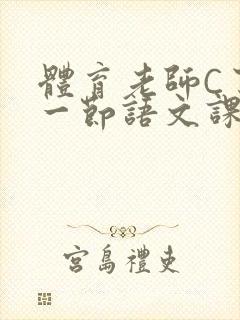 體育老師C
一節語文課
宮島禮吏